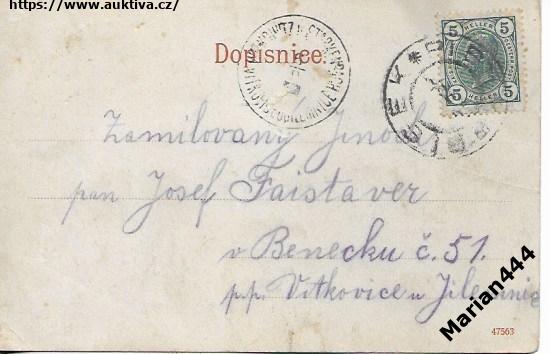 https://www.auktiva.cz/
Dopisnice.
5 HELLER 5
5 HELLER 5
Zamilovaný Jinoch
pan Josef Faistaver
v Benecku č. 51.
p.p. Vítkovice u Jilemnice
Marian444
47563